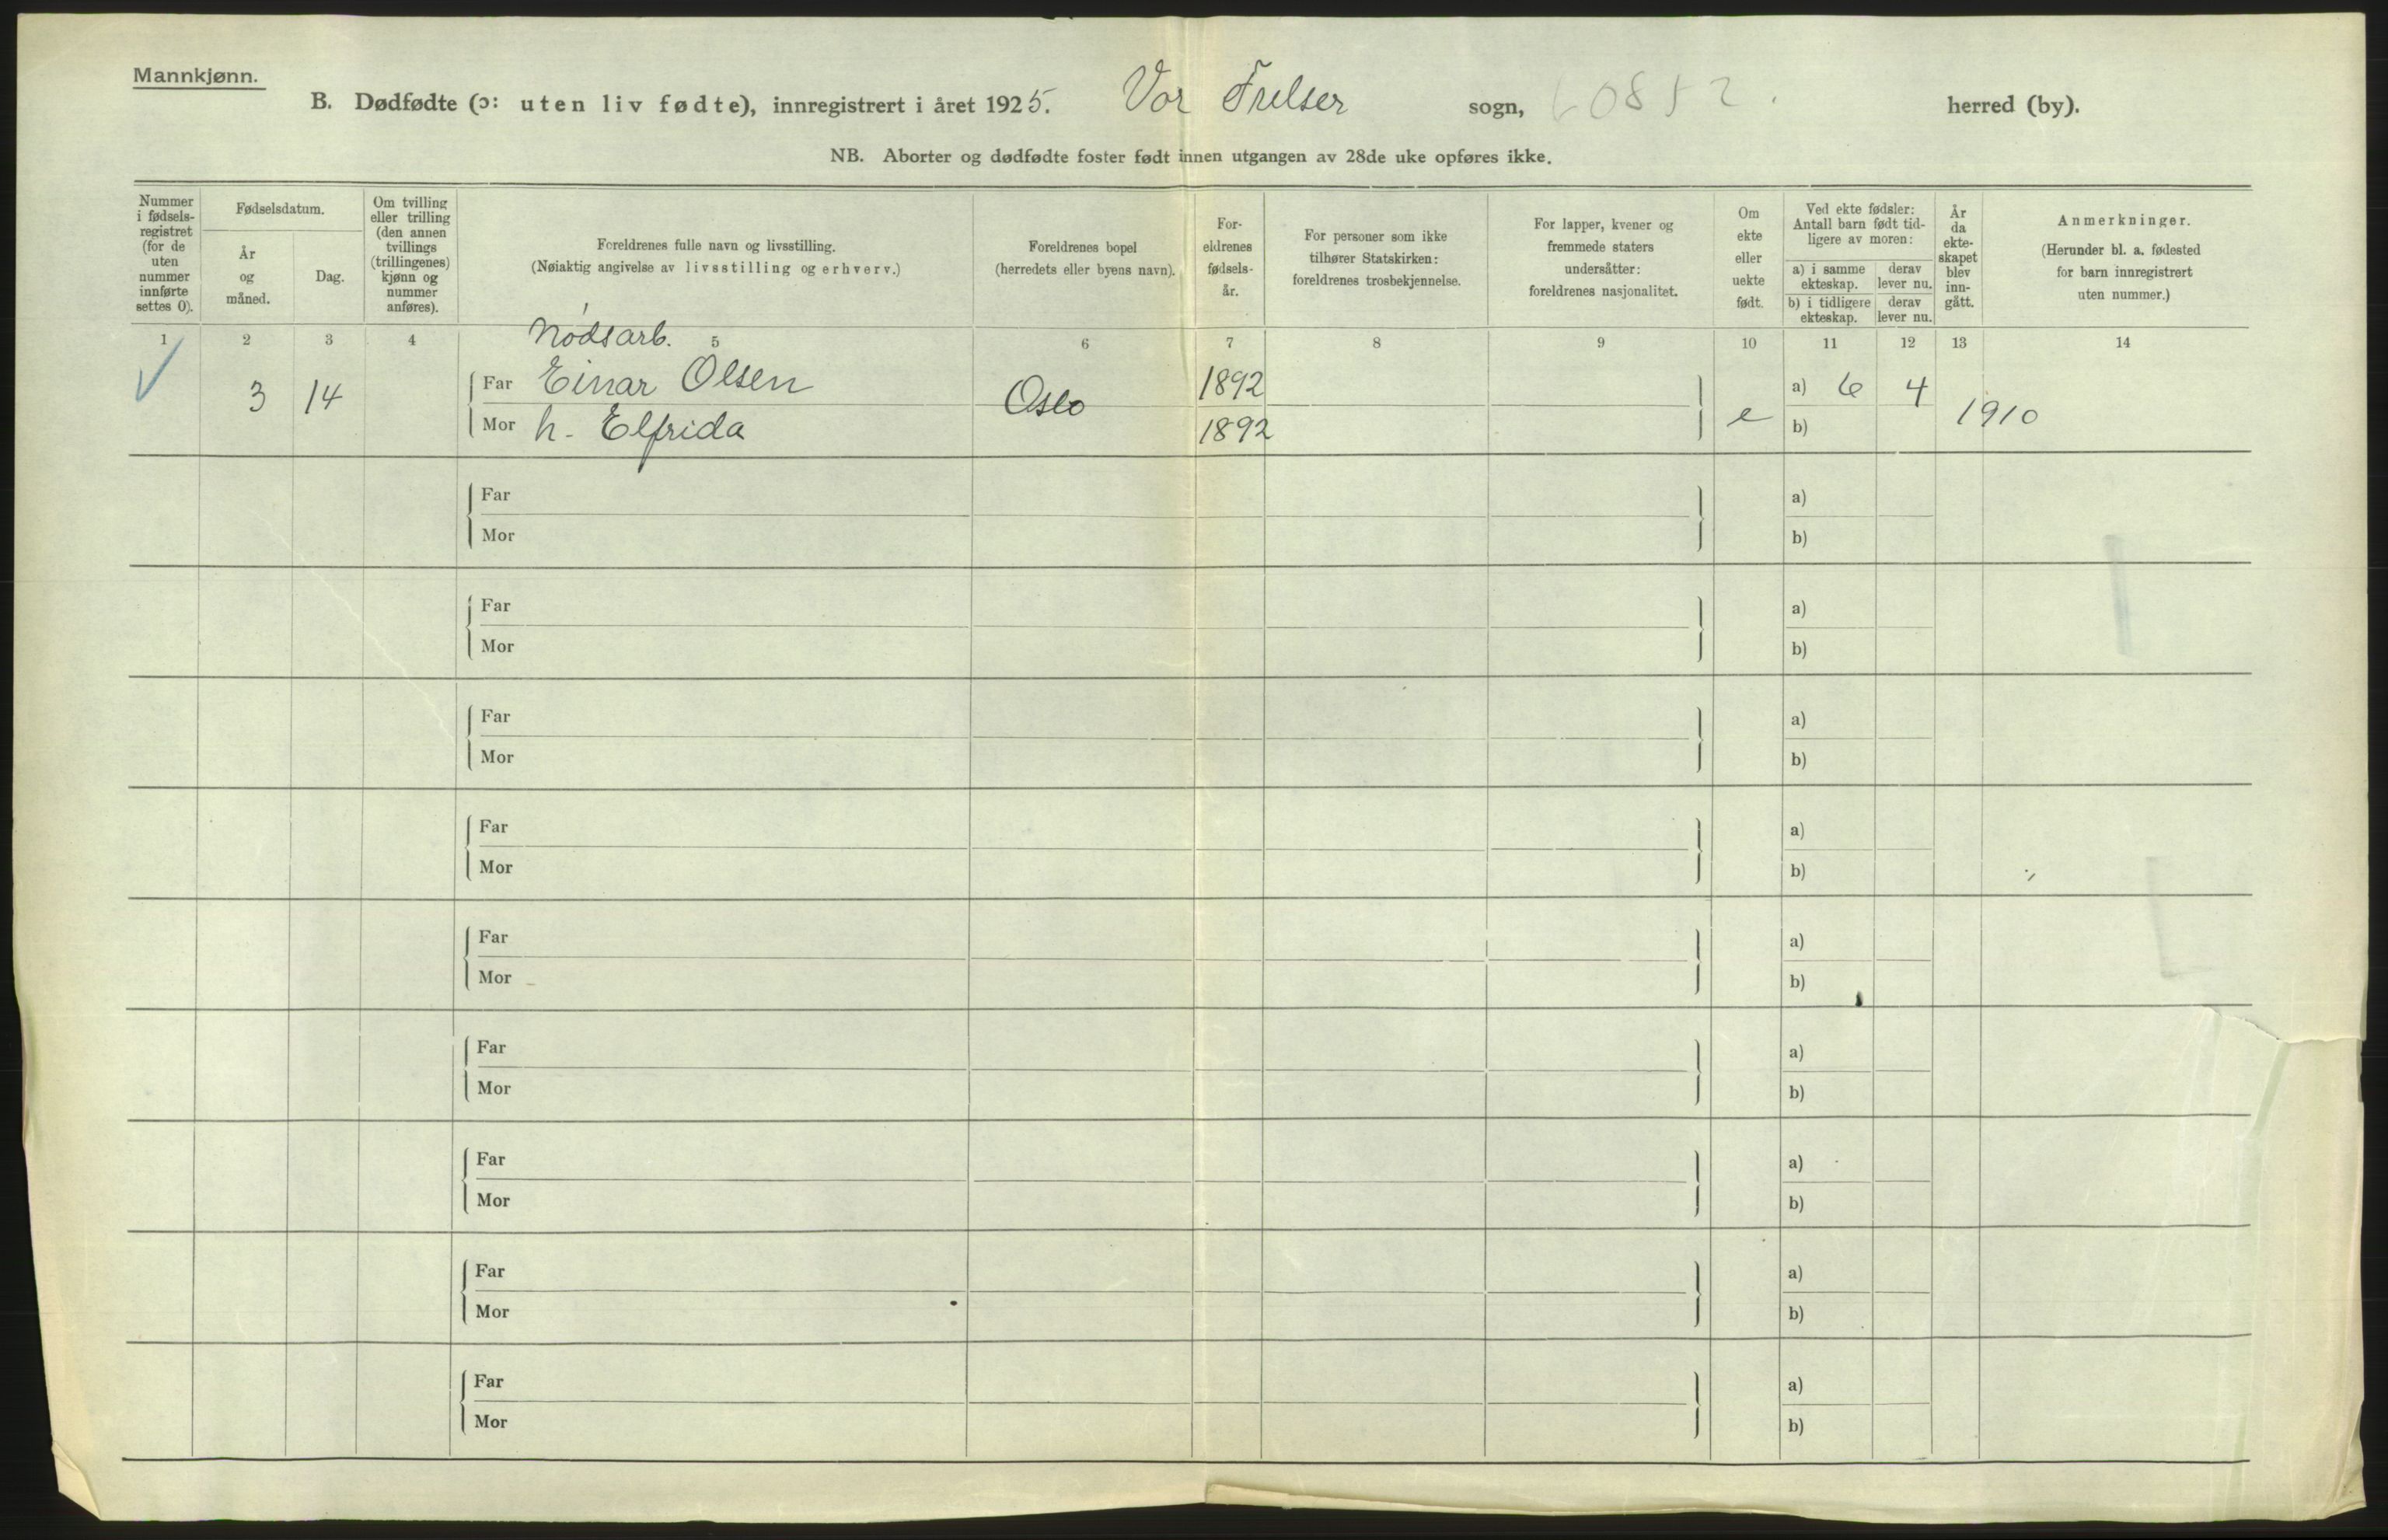 Mannkjønn.
B. Dødfødte (ɔ: uten liv fødte), innregistrert i året 1925. Vor Frelser sogn, herred (by).
NB. Aborter og dødfødte foster født innen utgangen av 28de uke opføres ikke.
Nummer
i fødsels-
registret
(for de
uten
nummer
innførte
settes 0).
Fødselsdatum.
År
og
måned.
Dag.
Om tvilling
eller trilling
(den annen
tvillings
(trillingenes)
kjønn og
nummer
anføres).
Foreldrenes fulle navn og livsstilling.
(Nøiaktig angivelse av livsstilling og erhverv.)
Foreldrenes bopel
(herredets eller byens navn).
For-
eldrenes
fødsels-
år.
For personer som ikke
tilhører Statskirken:
foreldrenes trosbekjennelse.
For lapper, kvener og
fremmede staters
undersåtter:
foreldrenes nasjonalitet.
Om
ekte
eller
uekte
født.
Ved ekte fødsler:
Antall barn født tid-
ligere av moren:
a) i samme
ekteskap.
derav
lever nu.
b) i tidligere
ekteskap.
derav
lever nu.
År
da
ekte-
skapet
blev
inn-
gått.
Anmerkninger.
(Herunder bl. a. fødested
for barn innregistrert
uten nummer.)
1 2 3 4 5 6 7 8 9 10 11 12 13 14
Nødsarb.
3 14 Far Einar Olsen Oslo 1892 e a) 6 4 1910
Mor h. Elfrida 1892 b)
Far a)
Mor b)
Far a)
Mor b)
Far a)
Mor b)
Far a)
Mor b)
Far a)
Mor b)
Far a)
Mor b)
Far a)
Mor b)
Far a)
Mor b)
Far a)
Mor b)